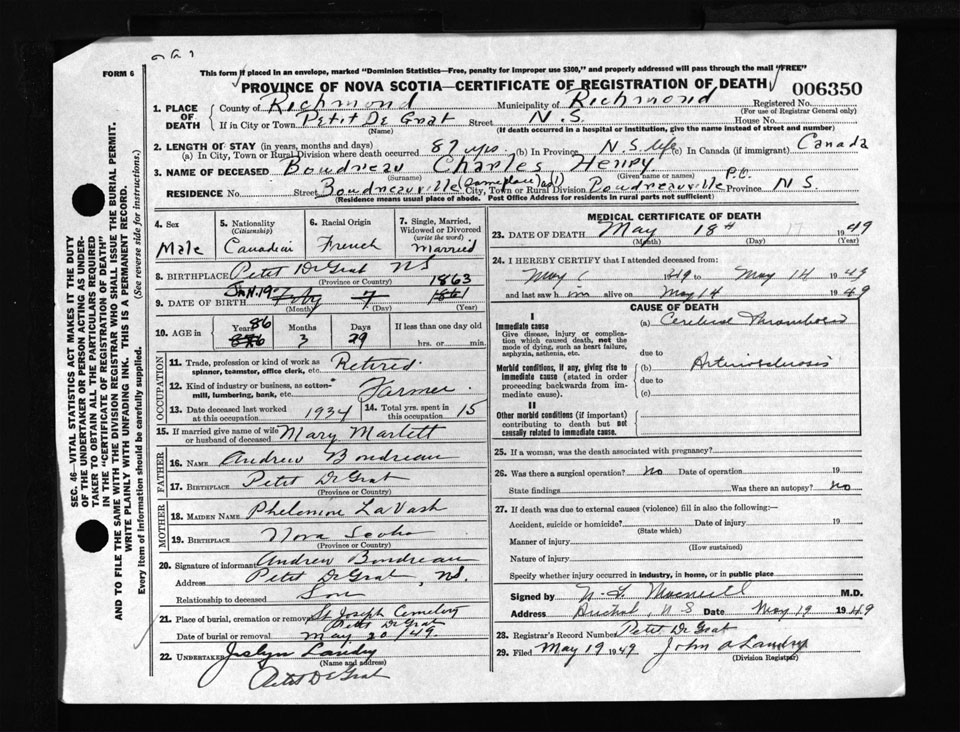 FORM 6
This form if placed in an envelope, marked "Dominion Statistics—Free, penalty for improper use $300," and properly addressed will pass through the mail "FREE"
PROVINCE OF NOVA SCOTIA—CERTIFICATE OF REGISTRATION OF DEATH
006350
SEC. 46—VITAL STATISTICS ACT MAKES IT THE DUTY
OF THE UNDERTAKER OR PERSON ACTING AS UNDER-
TAKER TO OBTAIN ALL THE PARTICULARS REQUIRED
IN THE "CERTIFICATE OF REGISTRATION OF DEATH"
AND TO FILE THE SAME WITH THE DIVISION REGISTRAR WHO SHALL ISSUE THE BURIAL PERMIT.
WRITE PLAINLY WITH UNFADING INK. THIS IS A PERMANENT RECORD.
Every item of Information should be carefully supplied. (See reverse side for instructions.)
1. PLACE OF DEATH
County of Richmond Municipality of Richmond Registered No.
(For use of Registrar General only)
If in City or Town Petit De Grat Street N.S. House No.
(Name) (If death occurred in a hospital or institution, give the name instead of street and number)
2. LENGTH OF STAY (in years, months and days)
(a) In City, Town or Rural Division where death occurred 87 yrs. (b) In Province N.S. life (c) In Canada (if immigrant) Canada
3. NAME OF DECEASED Boudreau Charles Henry
(Surname) (Given name or names)
RESIDENCE No. Street Boudreauville (same place as 1) City, Town or Rural Division Boudreauville P.O. Province N S
(Residence means usual place of abode. Post Office Address for residents in rural parts not sufficient)
4. Sex
Male
5. Nationality
(Citizenship)
Canadian
6. Racial Origin
French
7. Single, Married, Widowed or Divorced
(write the word)
Married
8. BIRTHPLACE Petit De Grat NS
(Province or Country)
Jan. 19 1863
9. DATE OF BIRTH Feby 7 1861
(Month) (Day) (Year)
10. AGE in
Years 86
Months 3
Days 29
If less than one day old
hrs. or min.
OCCUPATION
11. Trade, profession or kind of work as spinner, teamster, office clerk, etc. Retired
12. Kind of industry or business, as cotton-mill, lumbering, bank, etc. Farmer.
13. Date deceased last worked at this occupation 1934
14. Total yrs. spent in this occupation 15
15. If married give name of wife or husband of deceased Mary Martett
FATHER
16. NAME Andrew Boudreau
17. BIRTHPLACE Petit De Grat
(Province or Country)
MOTHER
18. MAIDEN NAME Phelemine LaVash
19. BIRTHPLACE Nova Scotia
(Province or Country)
20. Signature of informant Andrew Boudreau
Address Petit De Grat, NS.
Relationship to deceased Son
21. Place of burial, cremation or removal St Joseph Cemetery
Petit De Grat
Date of burial or removal May 20/49.
22. UNDERTAKER Joslyn Landry
(Name and address)
Petit De Grat
MEDICAL CERTIFICATE OF DEATH
23. DATE OF DEATH May 18th 17 1949
(Month) (Day) (Year)
24. I HEREBY CERTIFY that I attended deceased from:
May 1 1949 to May 14 1949
and last saw him alive on May 14 1949
CAUSE OF DEATH
I
Immediate cause
Give disease, injury or complication which caused death, not the mode of dying, such as heart failure, asphyxia, asthenia, etc.
(a) Cerebral Thrombosis
due to
Morbid conditions, if any, giving rise to immediate cause (stated in order proceeding backwards from immediate cause).
(b) Arteriosclerosis
due to
(c)
II
Other morbid conditions (if important) contributing to death but not causally related to immediate cause.
25. If a woman, was the death associated with pregnancy?
26. Was there a surgical operation? no Date of operation 19
State findings Was there an autopsy? no
27. If death was due to external causes (violence) fill in also the following:—
Accident, suicide or homicide? Date of injury 19
(State which)
Manner of injury
(How sustained)
Nature of injury
Specify whether injury occurred in industry, in home, or in public place
Signed by M.D.
Address N S Date May 19 1949
28. Registrar's Record Number Petit De Grat
29. Filed May 19 1949 John A Landry
(Division Registrar)